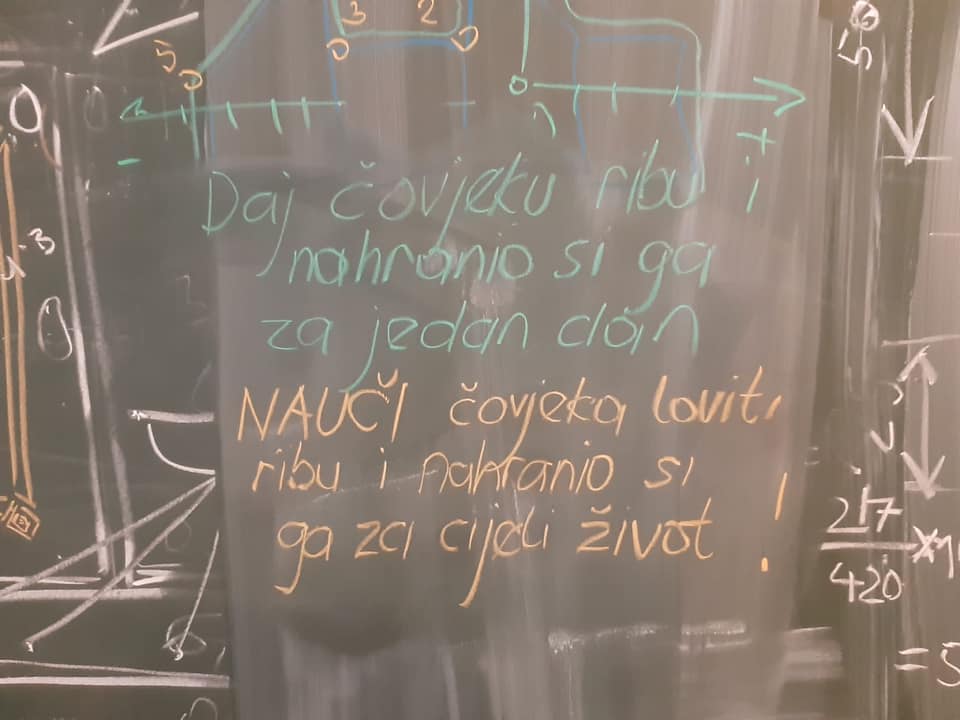 3 2
5
- +
Daj čovjeku ribu i
nahranio si ga
za jedan dan
NAUČI čovjeka loviti
ribu i nahranio si
ga za cijeli život !
217
420
= 5